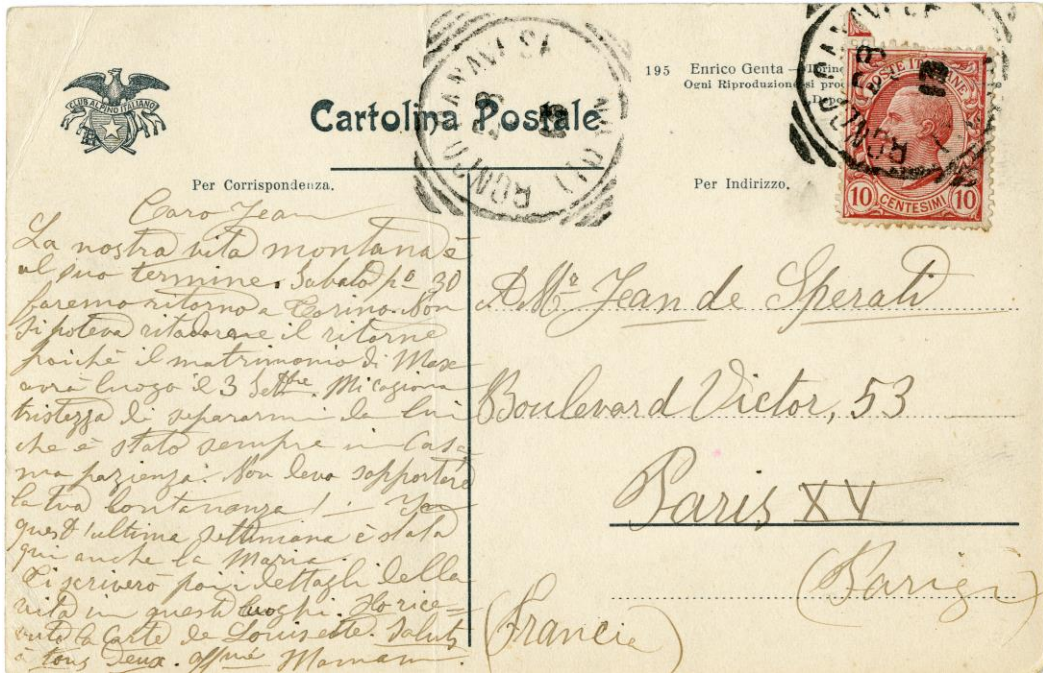 CLUB ALPINO ITALIANO
Cartolina Postale
195 Enrico Genta
Ogni Riproduzione si
RONCO CANAVESE
(TORINO)
POSTE ITALIANE
10 CENTESIMI 10
Per Corrispondenza.
Per Indirizzo.
Caro Jean
La nostra vita montana è
al suo termine. Sabato pº 30
faremo ritorno a Torino. Non
si poteva ritardare il ritorno
poiché il matrimonio di Max
avrà luogo il 3 Settbre. Mi cagiona
tristezza di separarmi da lui
che è stato sempre in casa,
ma pazienza. Non devo sopportare
la tua lontananza! –
quest'ultima settimana è stata
qui anche la Maria.
Ti scriverò poi i dettagli della
vita in questi luoghi. Ho rice=
vuto la carte de Louisette. Saluts
à tous deux. affmé Maman.
A Mr Jean de Sperati
Boulevard Victor, 53
Paris XV
(Parigi)
(Francia)